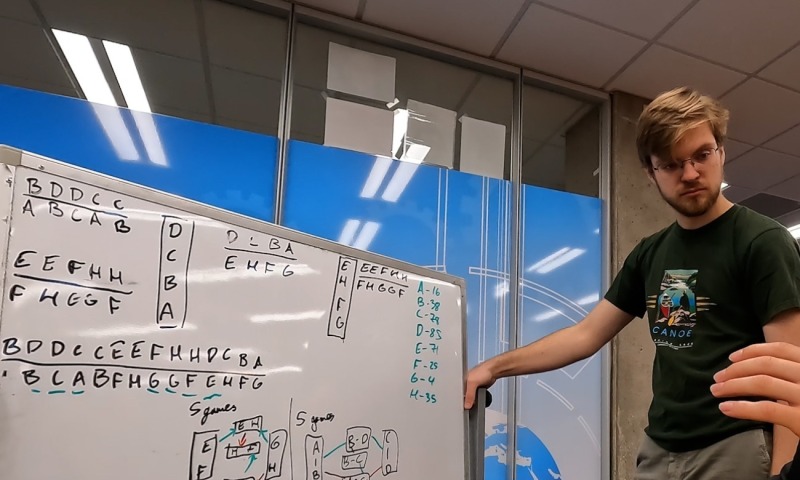 B D D C C
A B C A B
D
C
B
A
D C B A
E H F G
E
H
F
G
E E F H H
F H G G F
E E F H H
F H G G F
A-16
B-38
C-79
D-85
E-71
F-25
G-4
H-35
B D D C C E E F H H D C B A
B C A B F H G G F E H F G
5 games
E H
E
F
G
H
5 games
A
B
B-D
B-C
C
D
CANOE